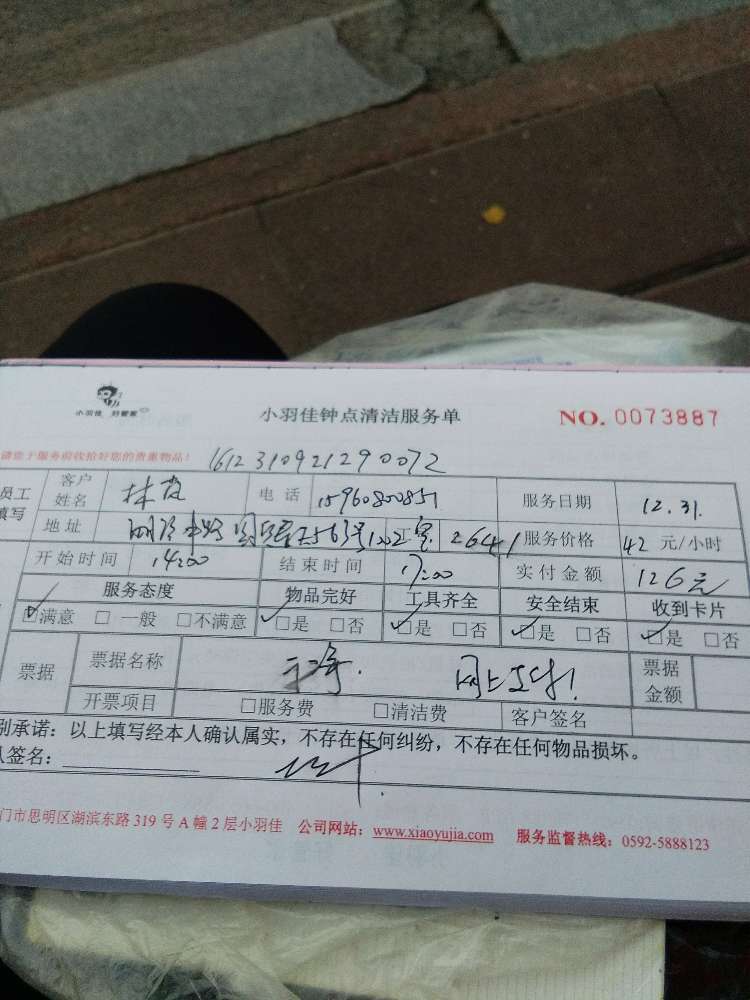 小羽佳 好管家
小羽佳钟点清洁服务单
NO. 0073887
请您于服务前收拾好您的贵重物品！
1612310921290072
员工填写
客户姓名 林 电话 15960800851 服务日期 12.31.
地址 2641 服务价格 42 元/小时
开始时间 14:00 结束时间 17:00 实付金额 126元
服务态度 物品完好 工具齐全 安全结束 收到卡片
☑满意 □一般 □不满意 ☑是 □否 ☑是 □否 ☑是 □否 ☑是 □否
票据 票据名称 网上 票据金额
开票项目 □服务费 □清洁费 客户签名
别承诺：以上填写经本人确认属实，不存在任何纠纷，不存在任何物品损坏。
人签名：
门市思明区湖滨东路 319 号 A 幢 2 层小羽佳 公司网站：www.xiaoyujia.com 服务监督热线：0592-5888123